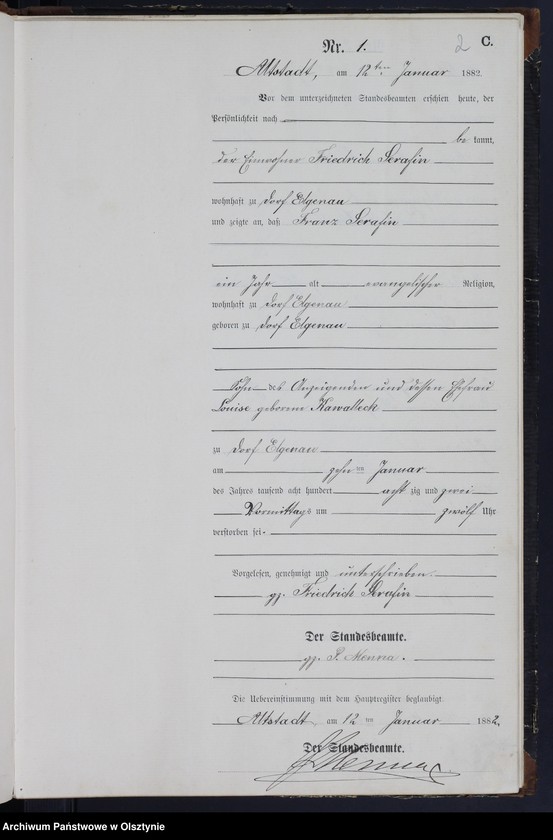 Nr. 1.
2 C.
Altstadt, am 12ten Januar 1882.
Vor dem unterzeichneten Standesbeamten erschien heute, der
Persönlichkeit nach
be kannt,
der Einwohner Friedrich Serafin
wohnhaft zu Dorf Elgenau
und zeigte an, daß Franz Serafin
ein Jahr alt evangelischer Religion,
wohnhaft zu Dorf Elgenau
geboren zu Dorf Elgenau
Sohn des Anzeigenden und dessen Ehefrau
Louise geborene Kawalleck
zu Dorf Elgenau
am zehnten Januar
des Jahres tausend acht hundert acht zig und zwei
Vormittags um zwölf Uhr
verstorben sei.
Vorgelesen, genehmigt und unterschrieben
gz. Friedrich Serafin
Der Standesbeamte.
gz. Menna.
Die Uebereinstimmung mit dem Hauptregister beglaubigt.
Altstadt am 12ten Januar 1882.
Der Standesbeamte.
Menna
Archiwum Państwowe w Olsztynie